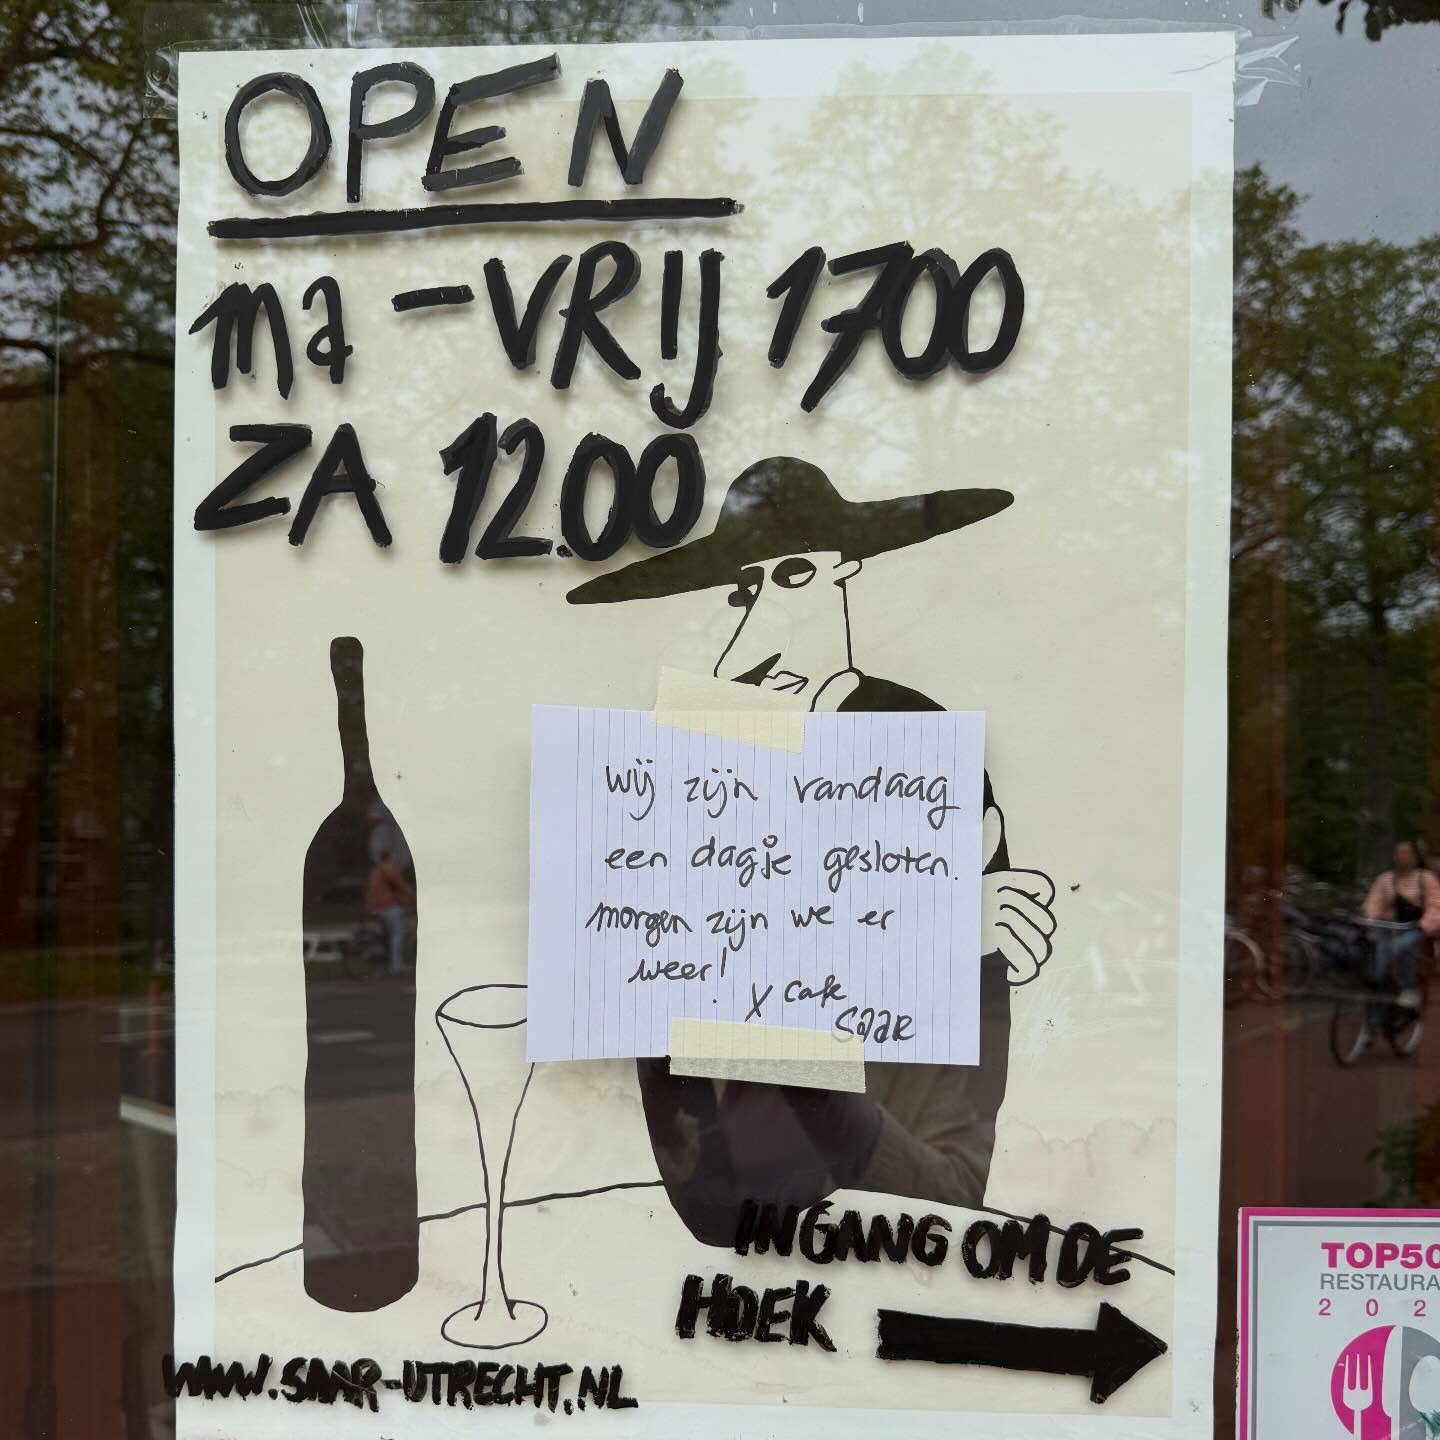 OPEN
ma - VRIJ 1700
ZA 12.00
wij zijn vandaag
een dagje gesloten.
morgen zijn we er
weer!
X cafe
SAAR
INGANG OM DE
HOEK
WWW.SAAR-UTRECHT.NL
TOP50
2 0 2